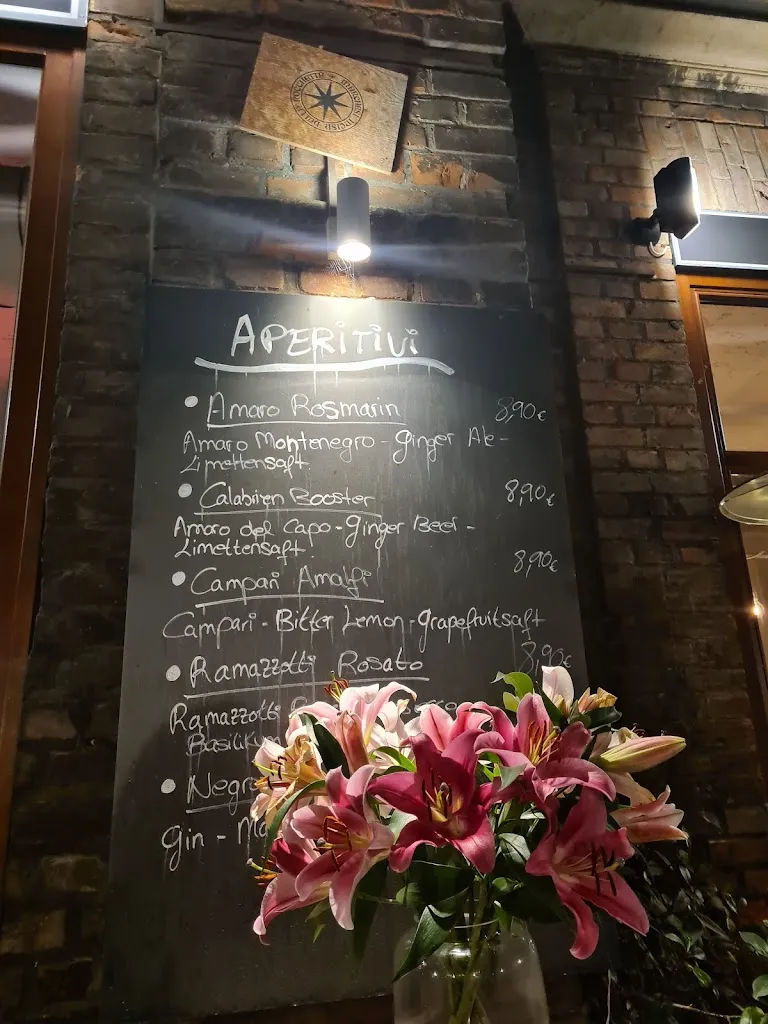 APERITIVI
• Amaro Rosmarin 8,90€
Amaro Montenegro - Ginger Ale -
Limettensaft
• Calabiren Booster 8,90€
Amaro del Capo - Ginger Beer -
Limettensaft
• Campari Amalfi 8,90€
Campari - Bitter Lemon - Grapefruitsaft
• Ramazzotti Rosato 8,90€
Ramazzotti
Basilikum
•
Gin -